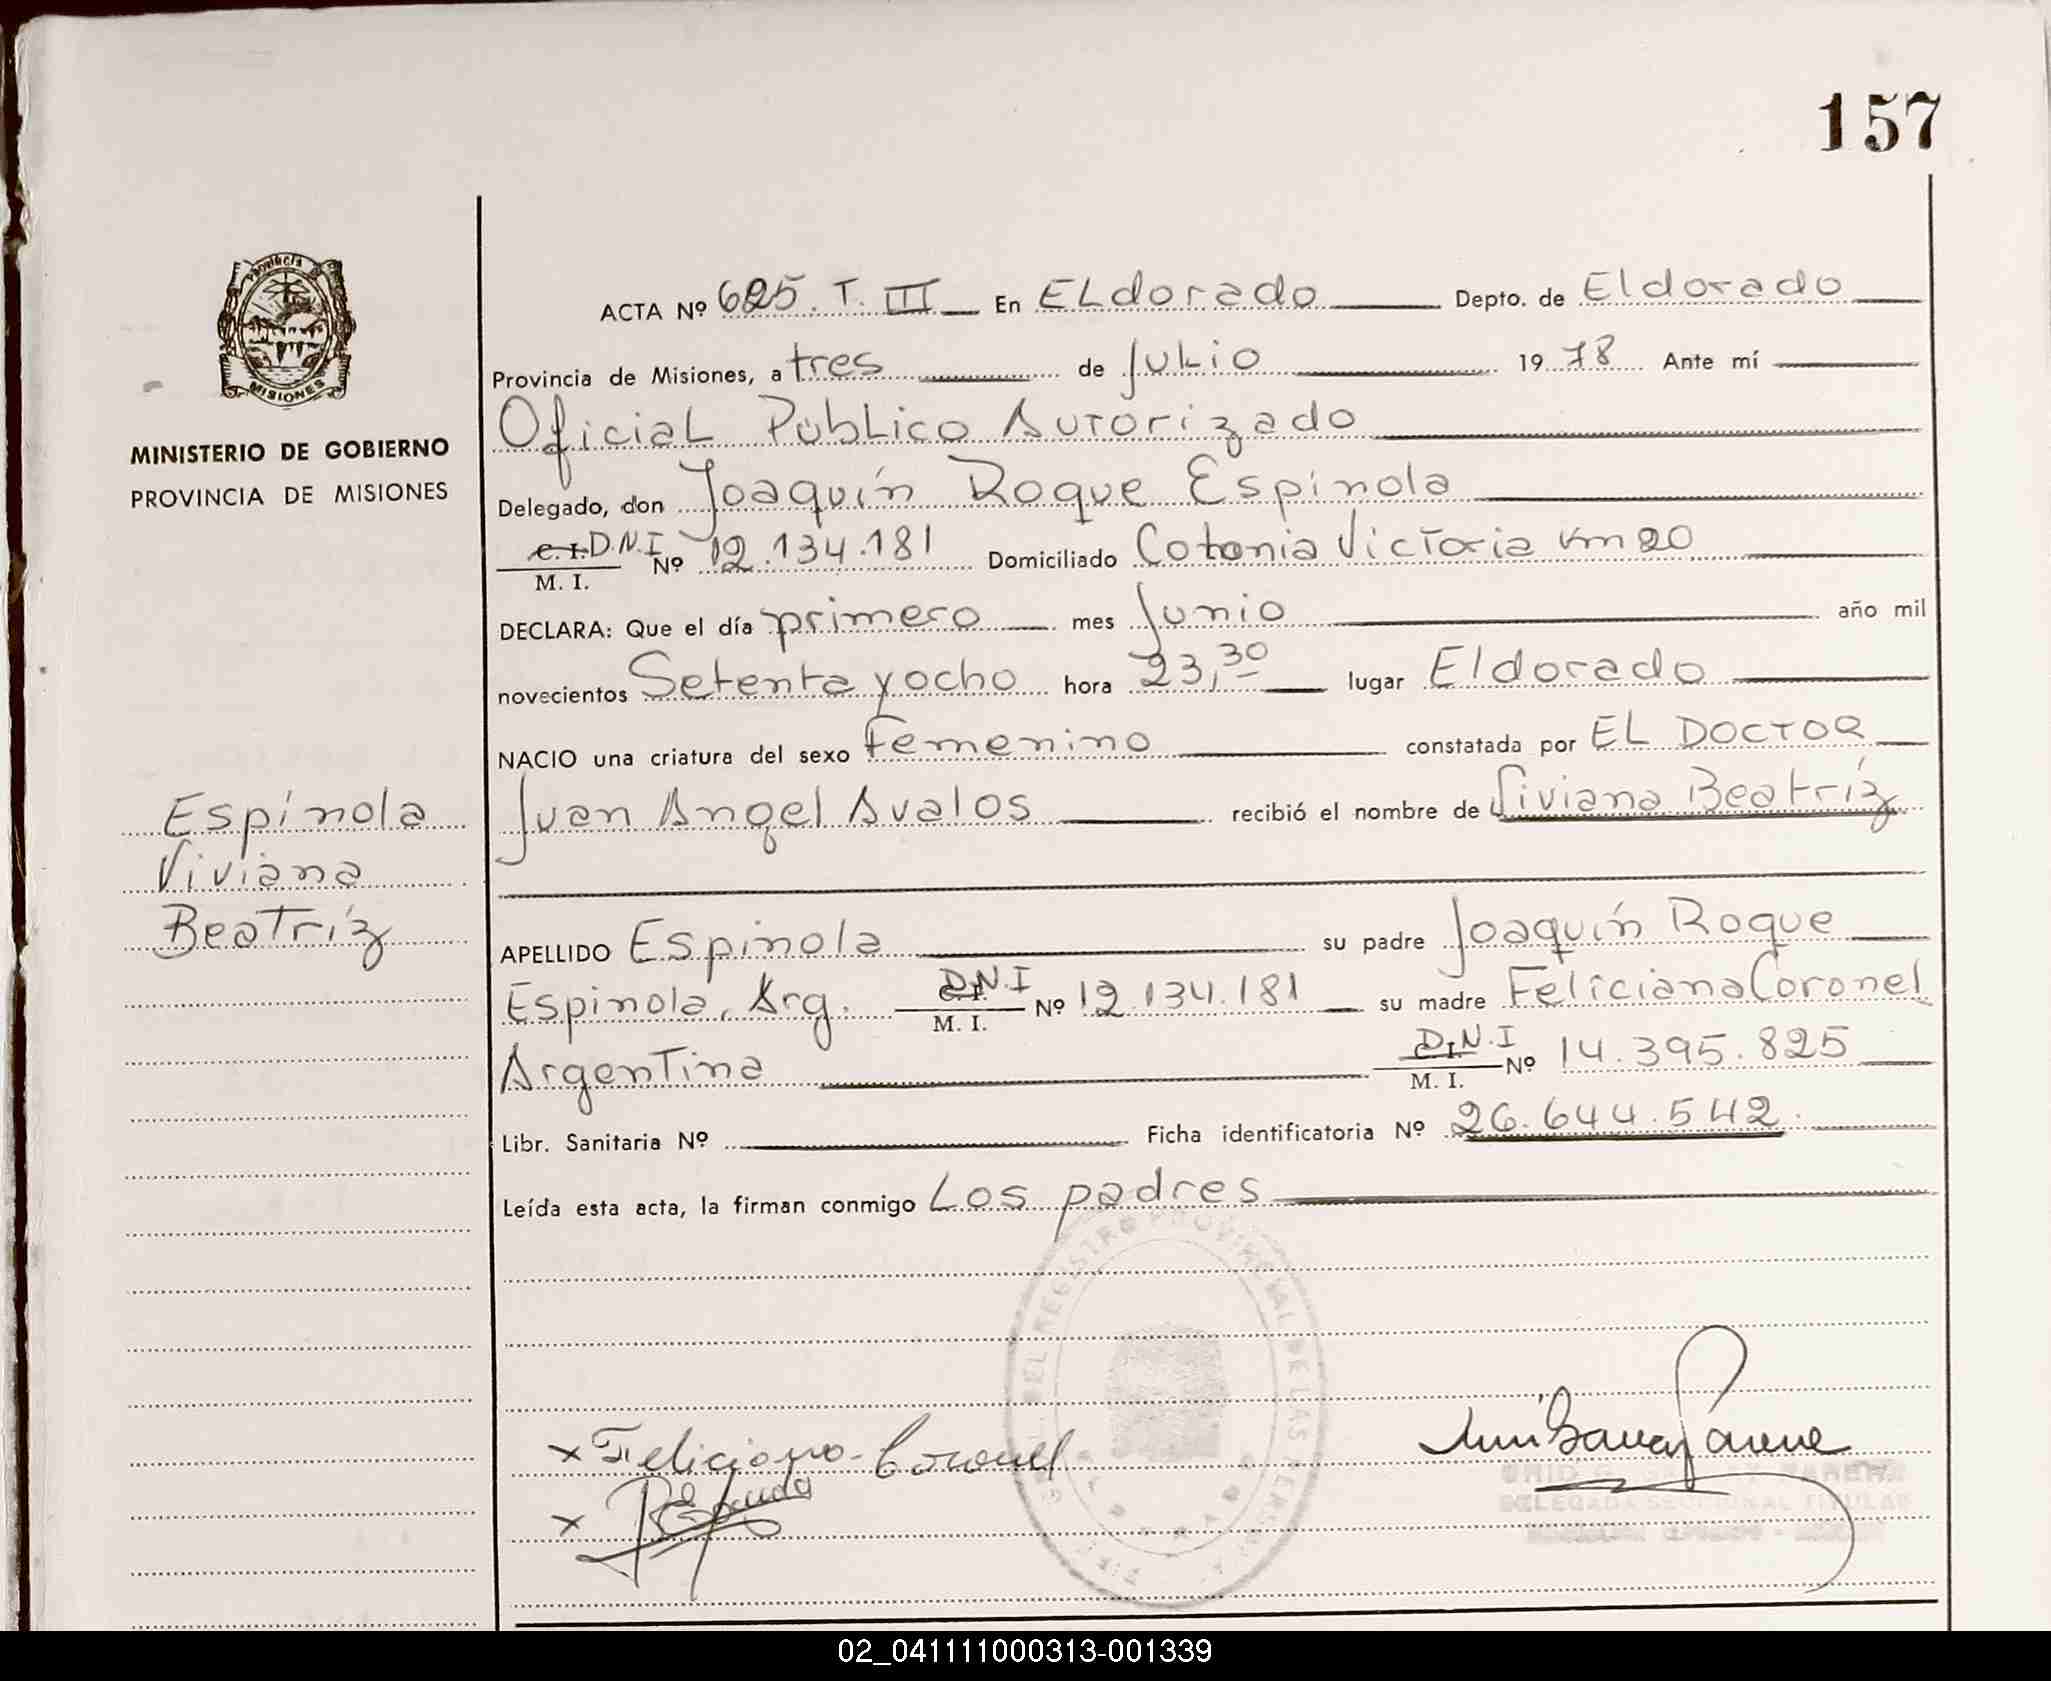 157
Provincia de
MISIONES
MINISTERIO DE GOBIERNO
PROVINCIA DE MISIONES
Espínola
Viviana
Beatríz
ACTA Nº 625. T. III En ELdorado Depto. de Eldorado
Provincia de Misiones, a tres de Julio 1978 Ante mí
Oficial Público Autorizado
Delegado, don Joaquín Roque Espínola
C. I. D.N.I Nº 12.134.181 Domiciliado Colonia Victoria km 20
M. I.
DECLARA: Que el día primero mes Junio año mil
novecientos Setenta y ocho hora 23,30 lugar Eldorado
NACIO una criatura del sexo Femenino constatada por EL DOCTOR
Juan Angel Avalos recibió el nombre de Viviana Beatríz
APELLIDO Espínola su padre Joaquín Roque
Espínola, Arg. D.N.I Nº 12.134.181 su madre Feliciana Coronel
M. I.
Argentina D.N.I Nº 14.395.825
M. I.
Libr. Sanitaria Nº Ficha identificatoria Nº 26.644.542.
Leída esta acta, la firman conmigo Los padres
DEL REGISTRO PROVINCIAL DE LAS PERSONAS
x Feliciana Coronel
x
DELEGADA SECCIONAL TITULAR
02_041111000313-001339